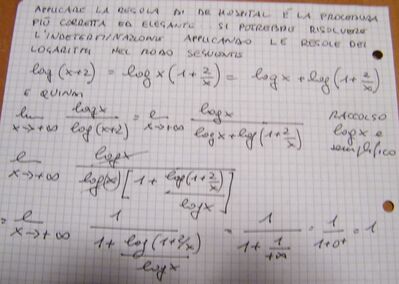 APPLICARE LA REGOLA DI DE HOSPITAL È LA PROCEDURA
PIÙ CORRETTA ED ELEGANTE. SI POTREBBE RISOLVERE
L'INDETERMINAZIONE APPLICANDO LE REGOLE DEI
LOGARITMI NEL MODO SEGUENTE
log(x+2) = log x(1+2/x) = log x + log(1+2/x)
E QUINDI
lim x→+∞ log x / log(x+2) = lim x→+∞ log x / (log x + log(1+2/x)) RACCOLGO log x e semplifico
lim x→+∞ log x / (log(x)[1 + log(1+2/x)/log x])
= lim x→+∞ 1 / (1 + log(1+2/x)/log x) = 1 / (1 + 1/+∞) = 1/(1+0⁺) = 1